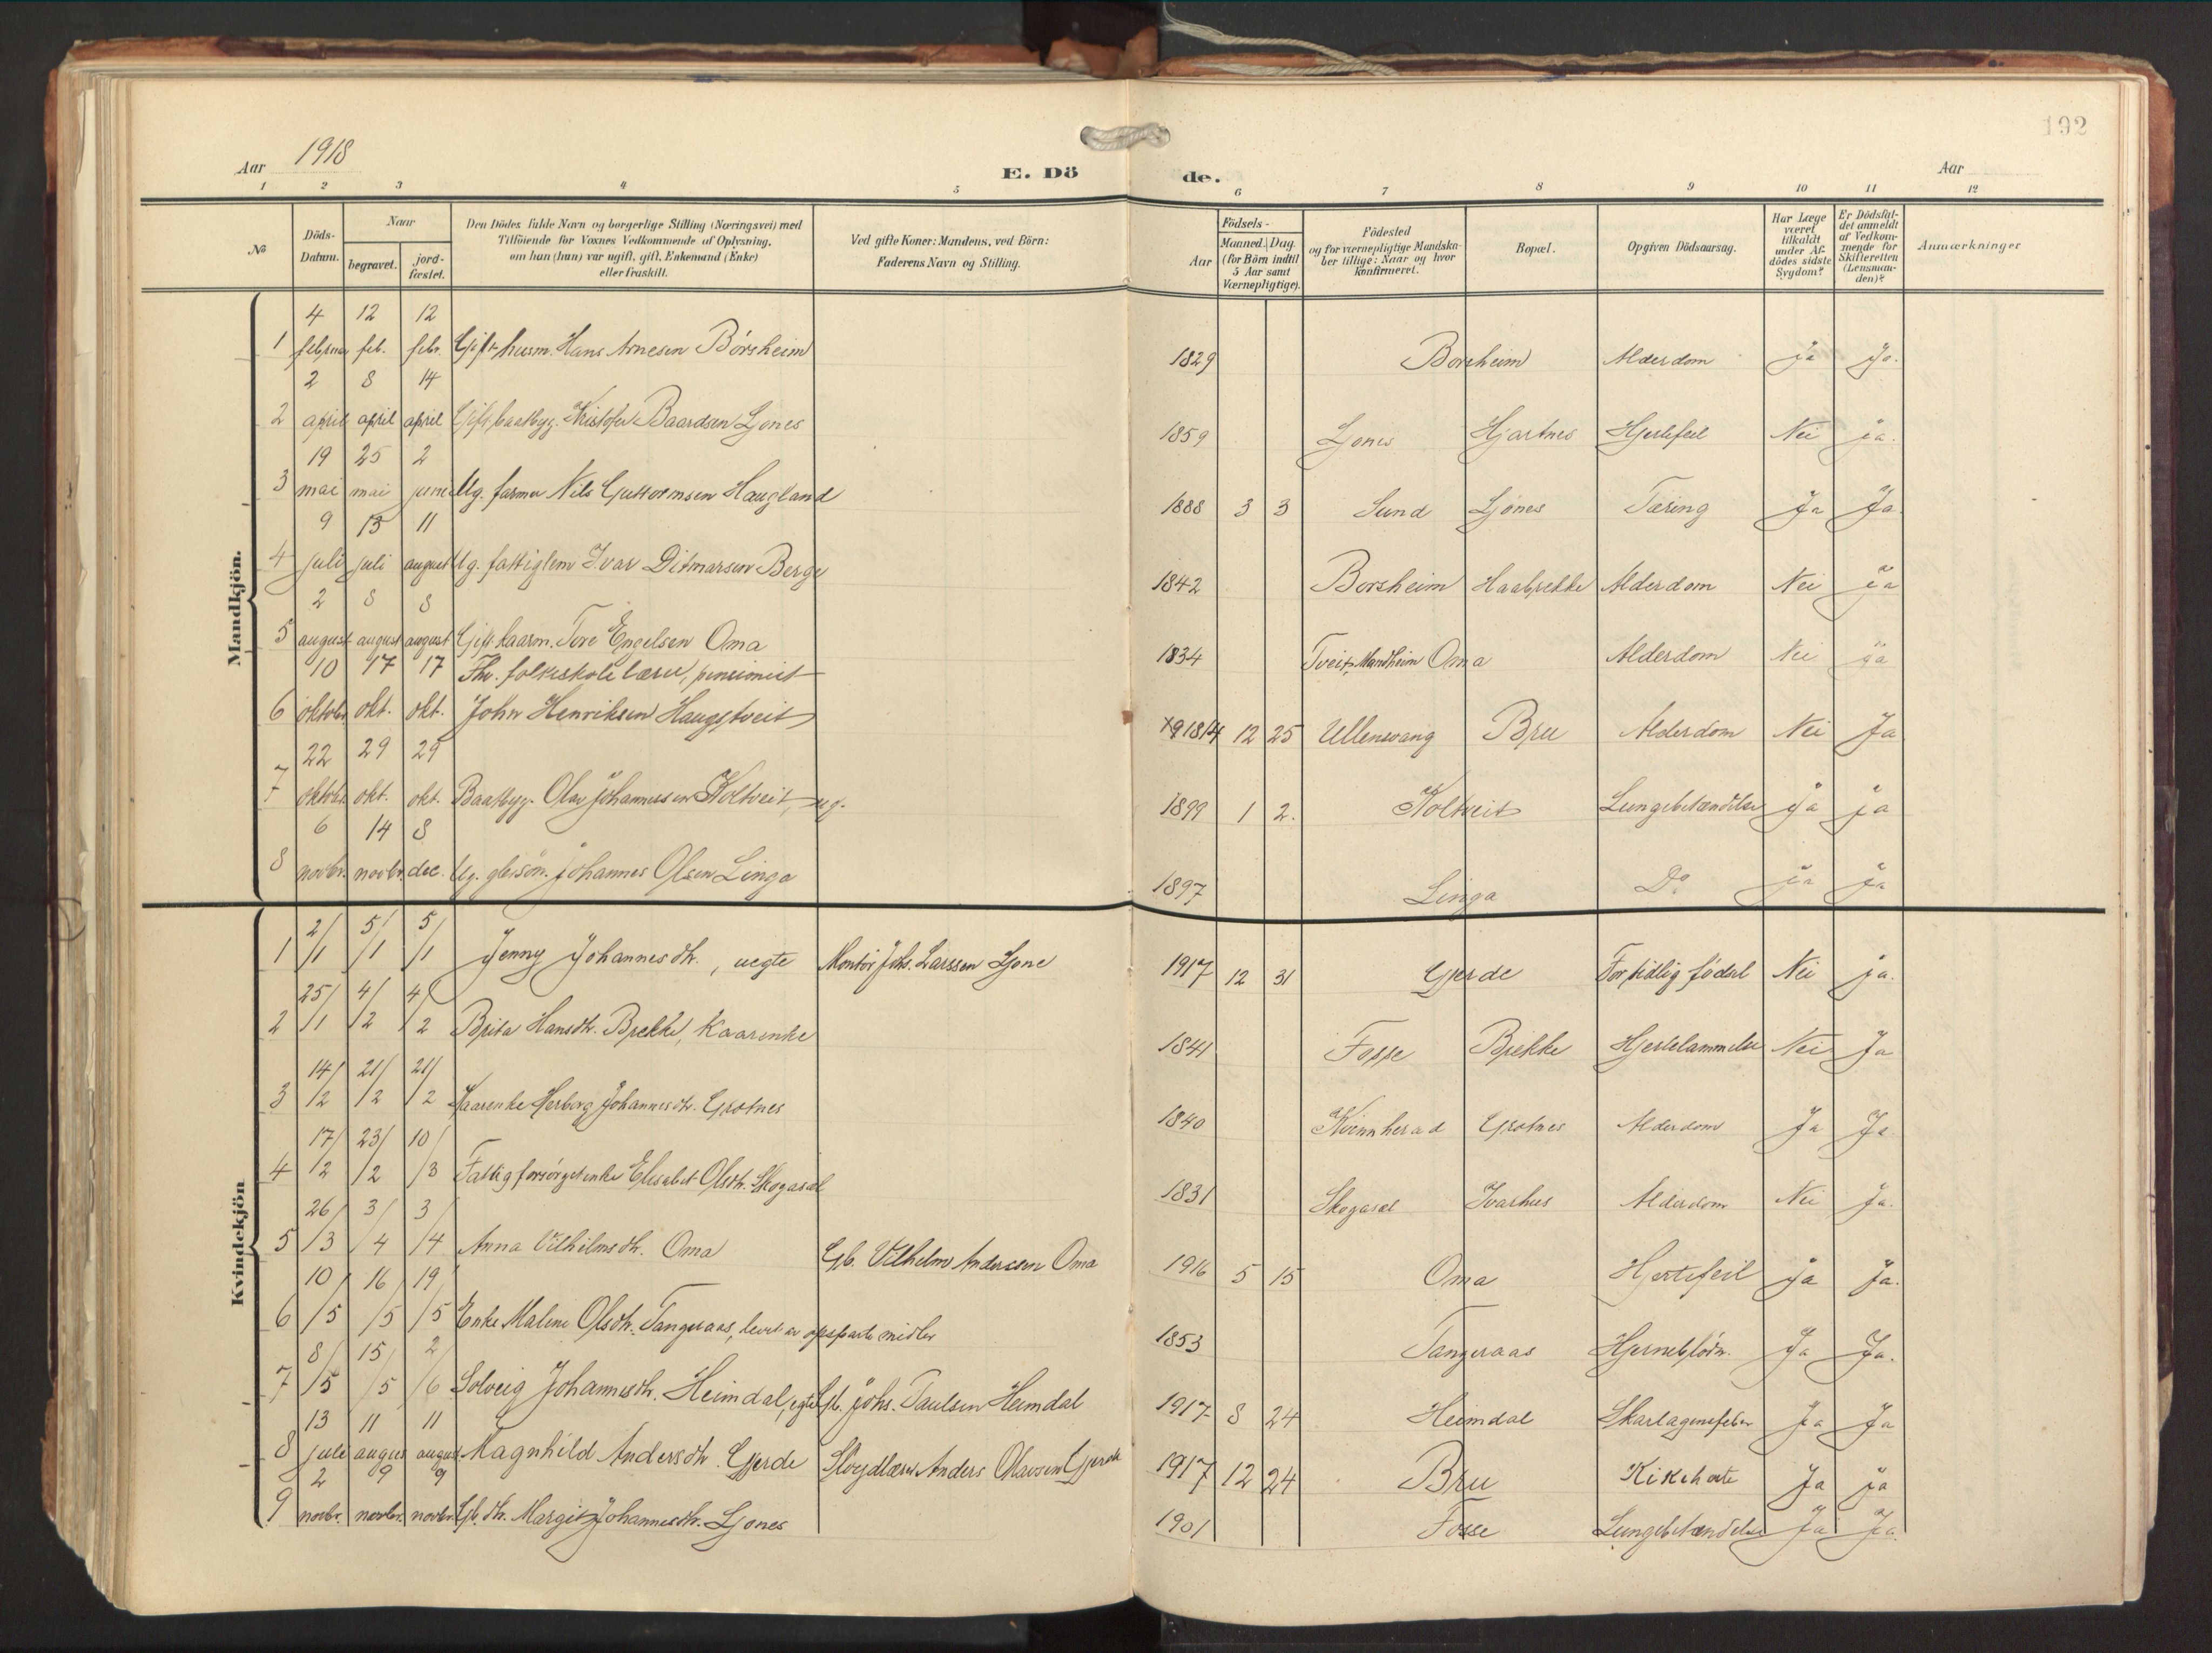 192
Aar 1918
E. Dö de.
Aar
1 2 3 4 5 6 7 8 9 10 11 12
No
Döds-Datum.
Naar
begravet.
jord-fæstet.
Den Dödes fulde Navn og borgerlige Stilling (Næringsvei) med
Tilföiende for Voxnes Vedkommende af Oplysning,
om han (hun) var ugift, gift, Enkemand (Enke)
eller fraskilt.
Ved gifte Koner: Mandens, ved Börn:
Faderens Navn og Stilling.
Födsels-
Aar
Maaned. Dag.
(for Börn indtil
5 Aar samt
Værnepligtige).
Födested
og for værnepligtige Mandska-
ber tillige: Naar og hvor
konfirmeret.
Bopæl.
Opgiven Dödsaarsag.
Har Læge
været
tilkaldt
under Af-
dödes sidste
Sygdom?
Er Dödsfal-
det anmeldt
af Vedkom-
mende for
Skifteretten
(Lensman-
den)?
Anmærkninger
Mandkjön.
4 12 12
1 februar feb. febr. Gift husm. Hans Arnesen Börsheim 1829 Borsheim Alderdom ja Ja.
2 8 14
2 april april april Gift baatbyg. Kristofer Baardsen Ljones 1859 Ljones Hjartnes Hjertefeil Nei ja.
19 25 2
3 mai mai juni Ug. farmer Nils Guttormsen Haugland 1888 3 3 Sund Ljones Tæring Ja Ja.
9 13 11
4 juli juli august Ug. fattiglem Ivar Ditmarsen Berge 1842 Borsheim Haabrekke Alderdom Nei ja
2 8 8
5 august august august Gift kaarm. Tore Engelsen Oma 1834 Tveit, Mandheim Oma Alderdom Nei ja
10 17 17 Fhv. folkeskolelærer, pensionist
6 oktober okt. okt. John Henriksen Haugstveit 1814 12 25 Ullensvang Bru Alderdom Nei Ja
22 29 29
7 oktober okt. okt. Baatbyg. Olav Johannessen Kolltveit, ug. 1899 1 2. Koltveit Lungebetændelse Ja ja
6 14 8
8 novbr. novbr. dec. Ug. gbrsön. Johannes Olsen Linga 1897 Linga Do ja Ja
Kvindekjön
2/ 5/ 5/
1 /1 /1 /1 Jenny Johannesdtr., uegte Montör Johs. Larssen Ljone 1917 12 31 Gjerde For tidlig födsel Nei ja.
25/ 4/ 4/
2 /1 /2 /2 Brita Hansdtr. Brekke, kaarenke 1841 Fosse Brekke Hjertelammelse Nei Ja
14/ 21/ 21/
3 /2 /2 /2 Kaarenke Herborg Johannesdtr. Grotnes 1840 Kvinnherad Grotnes Alderdom Ja Ja
17/ 23/ 10/
4 /2 /2 /3 Fattigforsörget enke Elisabet Olsdtr. Skogasæl 1831 Skogasæl Ivarhus Alderdom Nei Ja.
26/ 3/ 3/
5 /3 /4 /4 Anna Vilhilmsdtr. Oma Gb. Vilhelm Anderssen Oma 1916 5 15 Oma Hjertefeil Ja Ja.
10/ 16/ 19/
6 /5 /5 /5 Enke Malene Olsdtr. Tangeraas, levet av opsparte midler 1853 Tangeraas Hjerneblödn. Ja Ja.
8/ 15/ 2/
7 /5 /5 /6 Solveig Johannesdtr. Heimdal, egte Gb. Johs. Paulsen Heimdal 1917 8 24 Heimdal Skarlagensfeber Ja Ja
13 11 11
8 juli august august Magnhild Andersdtr. Gjerde Slöydlærer Anders Olavsen Gjerde 1917 12 24 Bru Kikhoste Ja ja
2 9 9
9 novbr. novbr. novbr. Gb. dtr. Margit Johannesdtr. Ljones 1901 Fosse Lungebetændelse Ja Ja